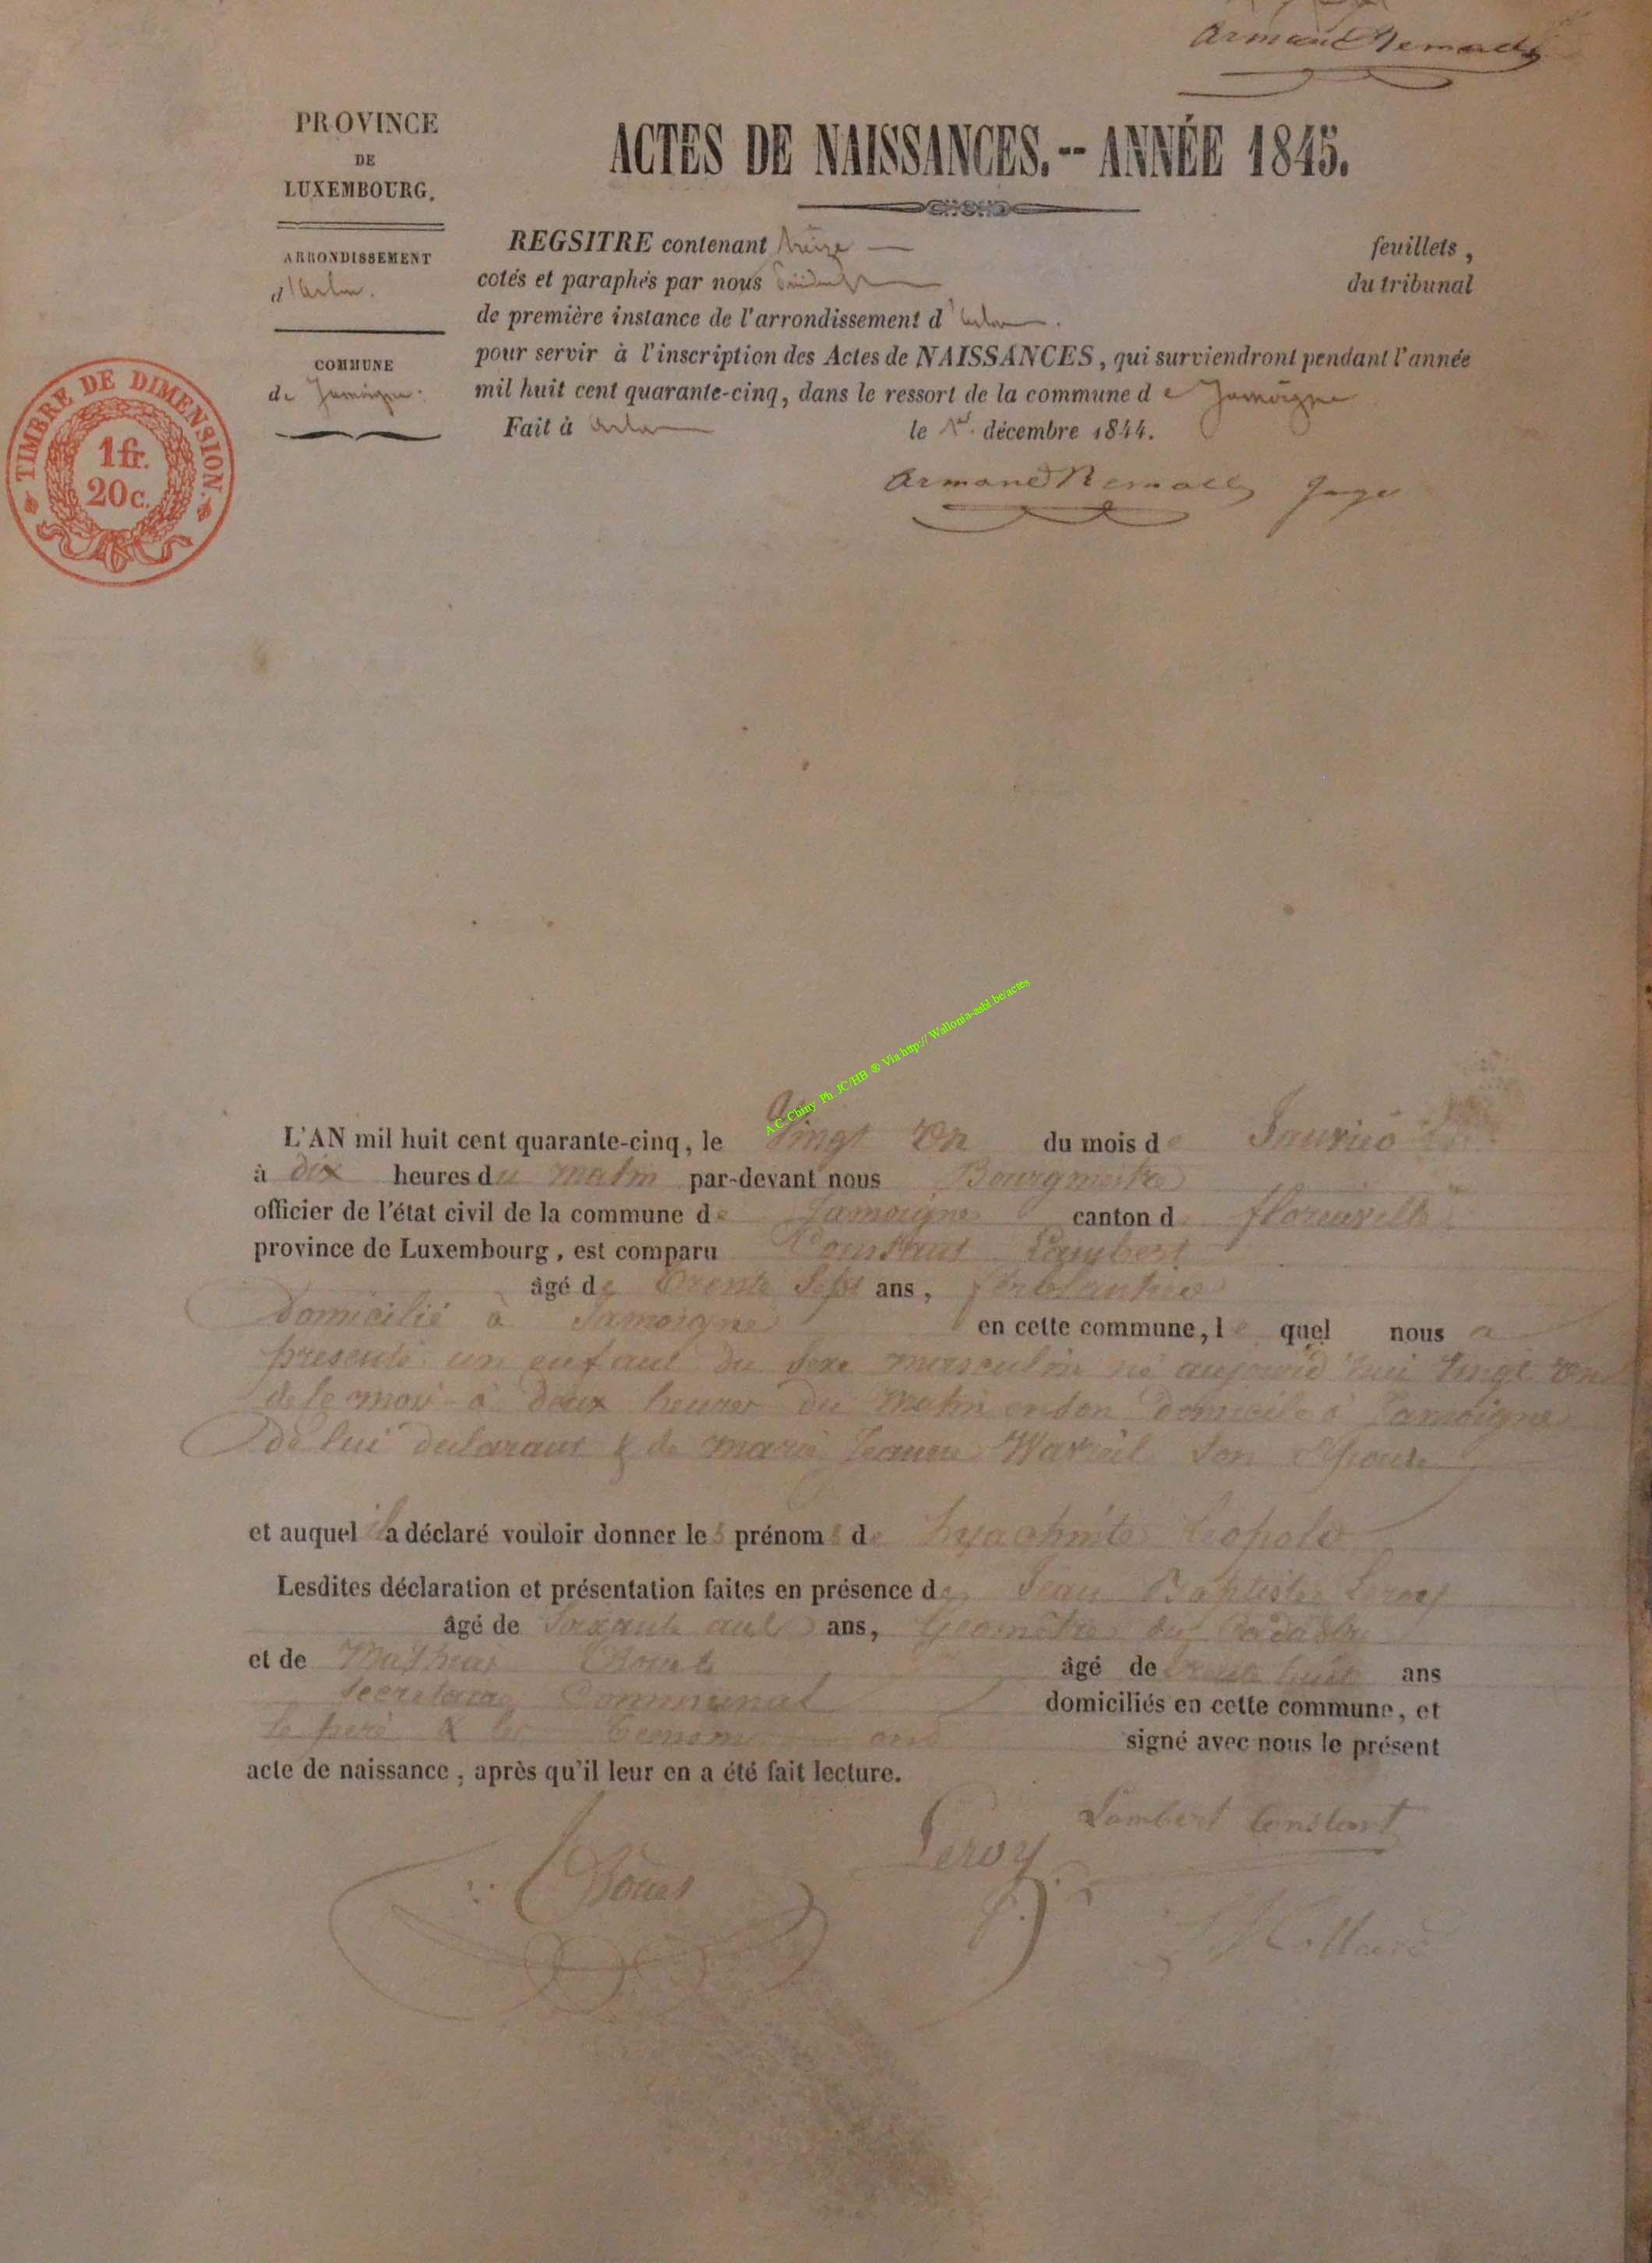 Armand Remacly
PROVINCE
DE
LUXEMBOURG.
ARRONDISSEMENT
d'Arlon.
COMMUNE
de Jamoigne.
TIMBRE DE DIMENSION.
1 fr.
20 c.
ACTES DE NAISSANCES.-- ANNÉE 1845.
REGSITRE contenant treize feuillets,
cotés et paraphés par nous Président du tribunal
de première instance de l'arrondissement d'Arlon.
pour servir à l'inscription des Actes de NAISSANCES, qui surviendront pendant l'année
mil huit cent quarante-cinq, dans le ressort de la commune de Jamoigne
Fait à Arlon le 1er décembre 1844.
Armand Remacly juge
A.C. Chiny Ph. JC/HB ® Via http:// Wallonia-asbl.be/actes
L'AN mil huit cent quarante-cinq, le Vingt un du mois de Janvier
à dix heures du matin par-devant nous Bourgmestre
officier de l'état civil de la commune de Jamoigne canton de florenville
province de Luxembourg, est comparu Constant Lambert
âgé de trente Sept ans, ferblantier
Domicilié à Jamoigne en cette commune, lequel nous a
présenté un enfant du sexe masculin né aujourd'hui vingt un
de ce mois à deux heures du matin en son domicile à Jamoigne
de lui déclarant & de marie Jeanne son Epouse
et auquel il a déclaré vouloir donner les prénoms de hyachinte Leopold
Lesdites déclaration et présentation faites en présence de Jean Baptiste Leroy
âgé de ans, Géomètre du Cadastre
et de Mathias âgé de trente huit ans
Secretaire Communal domiciliés en cette commune, et
le père & les temoins ont signé avec nous le présent
acte de naissance, après qu'il leur en a été fait lecture.
Lambert Constant
Leroy
Collard